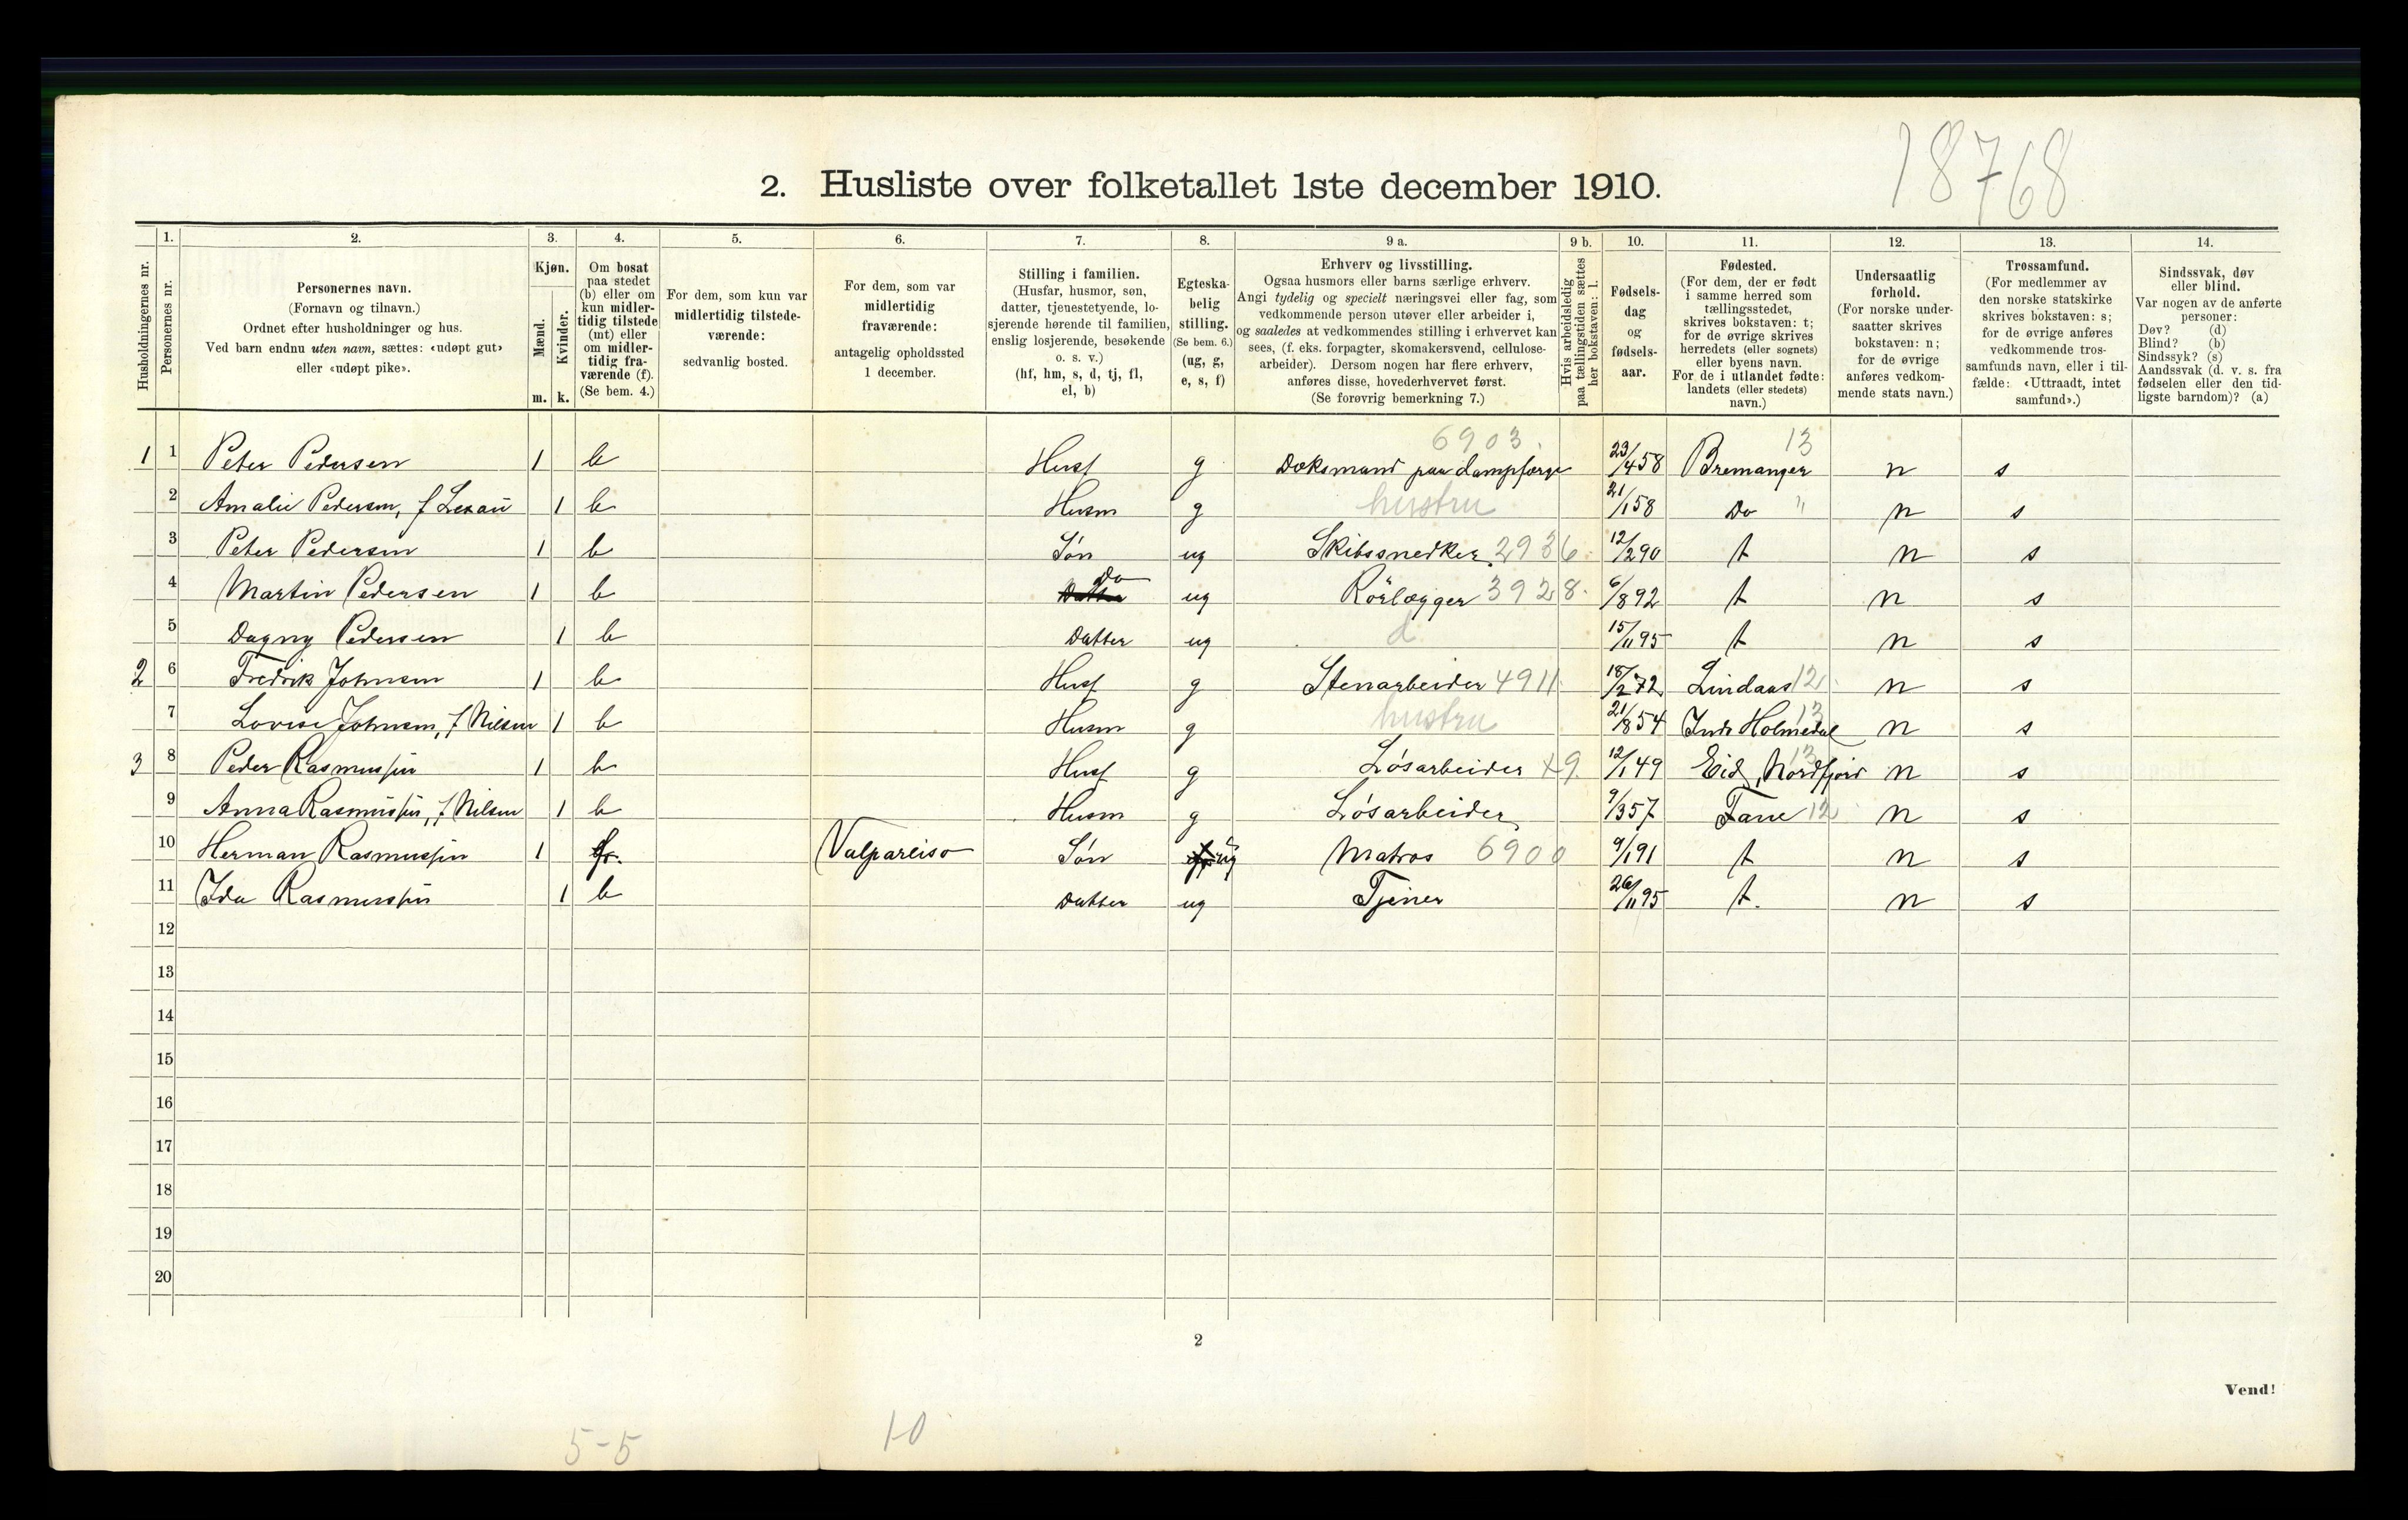 18768
2. Husliste over folketallet 1ste december 1910.
Husholdningernes nr.
1. Personernes nr.
2. Personernes navn.
(Fornavn og tilnavn.)
Ordnet efter husholdninger og hus.
Ved barn endnu uten navn, sættes: «udøpt gut»
eller «udøpt pike».
3. Kjøn.
Mænd. m.
Kvinder. k.
4. Om bosat
paa stedet
(b) eller om
kun midler-
tidig tilstede
(mt) eller
om midler-
tidig fra-
værende (f).
(Se bem. 4.)
5. For dem, som kun var
midlertidig tilstede-
værende:
sedvanlig bosted.
6. For dem, som var
midlertidig
fraværende:
antagelig opholdssted
1 december.
7. Stilling i familien.
(Husfar, husmor, søn,
datter, tjenestetyende, lo-
sjerende hørende til familien,
enslig losjerende, besøkende
o. s. v.)
(hf, hm, s, d, tj, fl,
el, b)
8. Egteska-
belig
stilling.
(Se bem. 6.)
(ug, g,
e, s, f)
9 a. Erhverv og livsstilling.
Ogsaa husmors eller barns særlige erhverv.
Angi tydelig og specielt næringsvei eller fag, som
vedkommende person utøver eller arbeider i,
og saaledes at vedkommendes stilling i erhvervet kan
sees, (f. eks. forpagter, skomakersvend, cellulose-
arbeider). Dersom nogen har flere erhverv,
anføres disse, hovederhvervet først.
(Se forøvrig bemerkning 7.)
9 b. Hvis arbeidsledig
paa tællingstiden sættes
her bokstaven: l.
10. Fødsels-
dag
og
fødsels-
aar.
11. Fødested.
(For dem, der er født
i samme herred som
tællingsstedet,
skrives bokstaven: t;
for de øvrige skrives
herredets (eller sognets)
eller byens navn.
For de i utlandet fødte:
landets (eller stedets)
navn.)
12. Undersaatlig
forhold.
(For norske under-
saatter skrives
bokstaven: n;
for de øvrige
anføres vedkom-
mende stats navn.)
13. Trossamfund.
(For medlemmer av
den norske statskirke
skrives bokstaven: s;
for de øvrige anføres
vedkommende tros-
samfunds navn, eller i til-
fælde: «Uttraadt, intet
samfund».)
14. Sindssvak, døv
eller blind.
Var nogen av de anførte
personer:
Døv? (d)
Blind? (b)
Sindssyk? (s)
Aandssvak (d. v. s. fra
fødselen eller den tid-
ligste barndom)? (a)
1 1 Peter Pedersen 1 b Husf g Dæksmand paa dampfærge 6903. 23/4 58 Bremanger 13 n s
2 Amalie Pedersen, f 1 b Husm g hustru 21/1 58 Do " n s
3 Peter Pedersen 1 b Søn ug Skibssnedker 2936. 12/2 90 t n s
4 Martin Pedersen 1 b Do ug Rörlægger 3928. 6/8 92 t n s
5 Dagny Pedersen 1 b Datter ug d 15/11 95 t n s
2 6 Fredrik Johnsen 1 b Husf g Stenarbeider 4911. 18/2 72 Lindaas 12 n s
7 Lovise Johnsen, f Nilsen 1 b Husm g hustru 21/8 54 Indr Holmedal 13 n s
3 8 Peder Rasmussen 1 b Husf g Løsarbeider 12/1 49 Eid, Nordfjord 13 n s
9 Anna Rasmussen, f Nilsen 1 b Husm g Løsarbeider 9/3 57 Fane 12 n s
10 Herman Rasmussen 1 f. Valpareiso Søn ug Matros 6900 9/1 91 t n s
11 Ida Rasmussen 1 b Datter ug Tjener 26/11 95 t. n s
12
13
14
15
16
17
18
19
20
2
Vend!
5-5 1-0